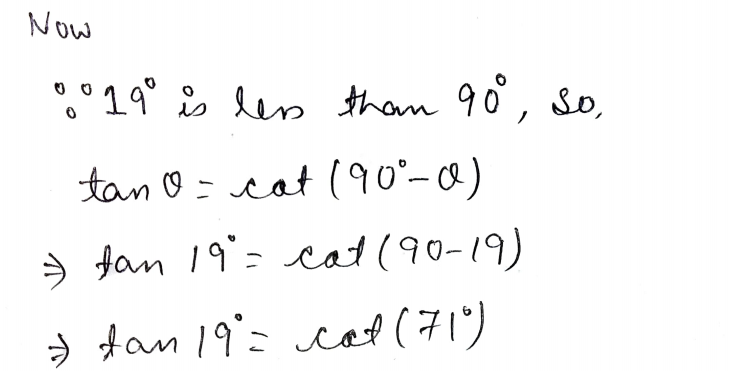 Now
∵ 19° is less than 90°, so,
tan θ = cot (90° - θ)
⇒ tan 19° = cot (90-19)
⇒ tan 19° = cot (71°)